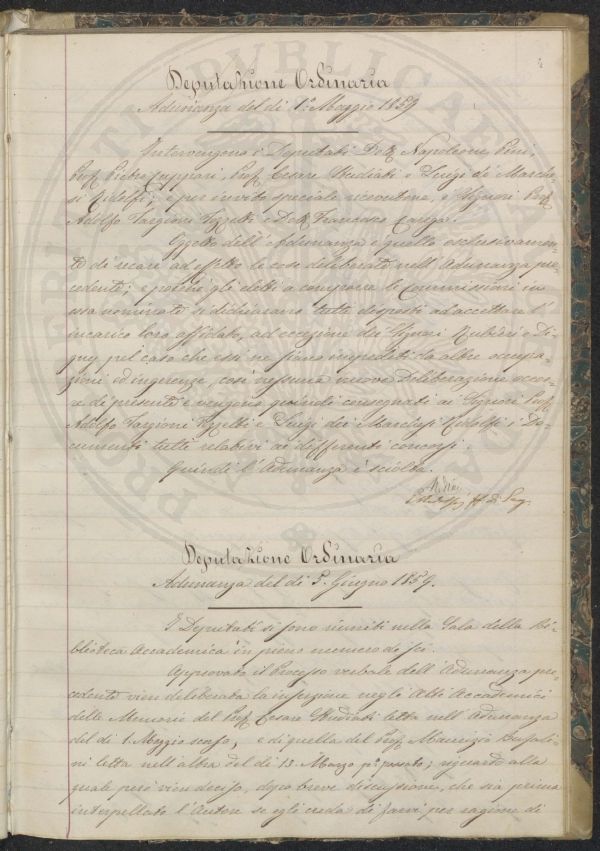 Deputazione Ordinaria
Adunanza del dì 1° Maggio 1859
Intervengono i Deputati Dott. Napoleone Pini,
Prof. Pietro Cuppari, Prof. Cesare Studiati e Luigi de' Marche-
si Ridolfi; e per invito speciale ricevutone, i Signori Prof.
Adolfo Targioni Tozzetti e Dott. Francesco Carega.
Oggetto dell'Adunanza è quello esclusivamen-
te di recare ad effetto le cose deliberate nell'Adunanza pre-
cedente; e poiché gli eletti a comporre le Commissioni in
essa nominate si dichiarano tutti disposti ad accettare l'
incarico loro affidato, ad eccezione dei Signori Rubieri e Di-
gny, pel caso che essi ne siano impediti da altre occupa-
zioni ed ingerenze, così nessuna nuova deliberazione occor-
re di presente e vengono quindi consegnati ai Signori Prof.
Adolfo Targioni Tozzetti e Luigi dei Marchesi Ridolfi i Do-
cumenti tutti relativi ai differenti concorsi.
Quindi l'Adunanza è sciolta.
Deputazione Ordinaria
Adunanza del dì 5. Giugno 1859.
I Deputati si sono riuniti nella Sala della Bi-
blioteca Accademica in pieno numero di sei.
Approvato il Processo verbale dell'Adunanza pre-
cedente vien deliberata la inserzione negli Atti Accademici
delle Memorie del Prof. Cesare Studiati letta nell'Adunanza
del dì 1. Maggio scorso, e di quella del Prof. Maurizio Bufali-
ni letta nell'altra del dì 13. Marzo p° passato; riguardo alla
quale però vien deciso, dopo breve discussione, che sia prima
interpellato l'Autore se egli creda di farvi per ragione di